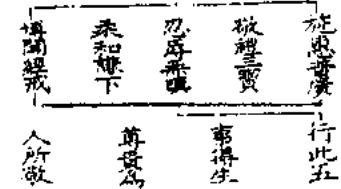 施惠普廣
敬禮三寶
忍辱無瞋
柔和謙下
博聞經戒
行此五
事得生
尊貴為
人所敬